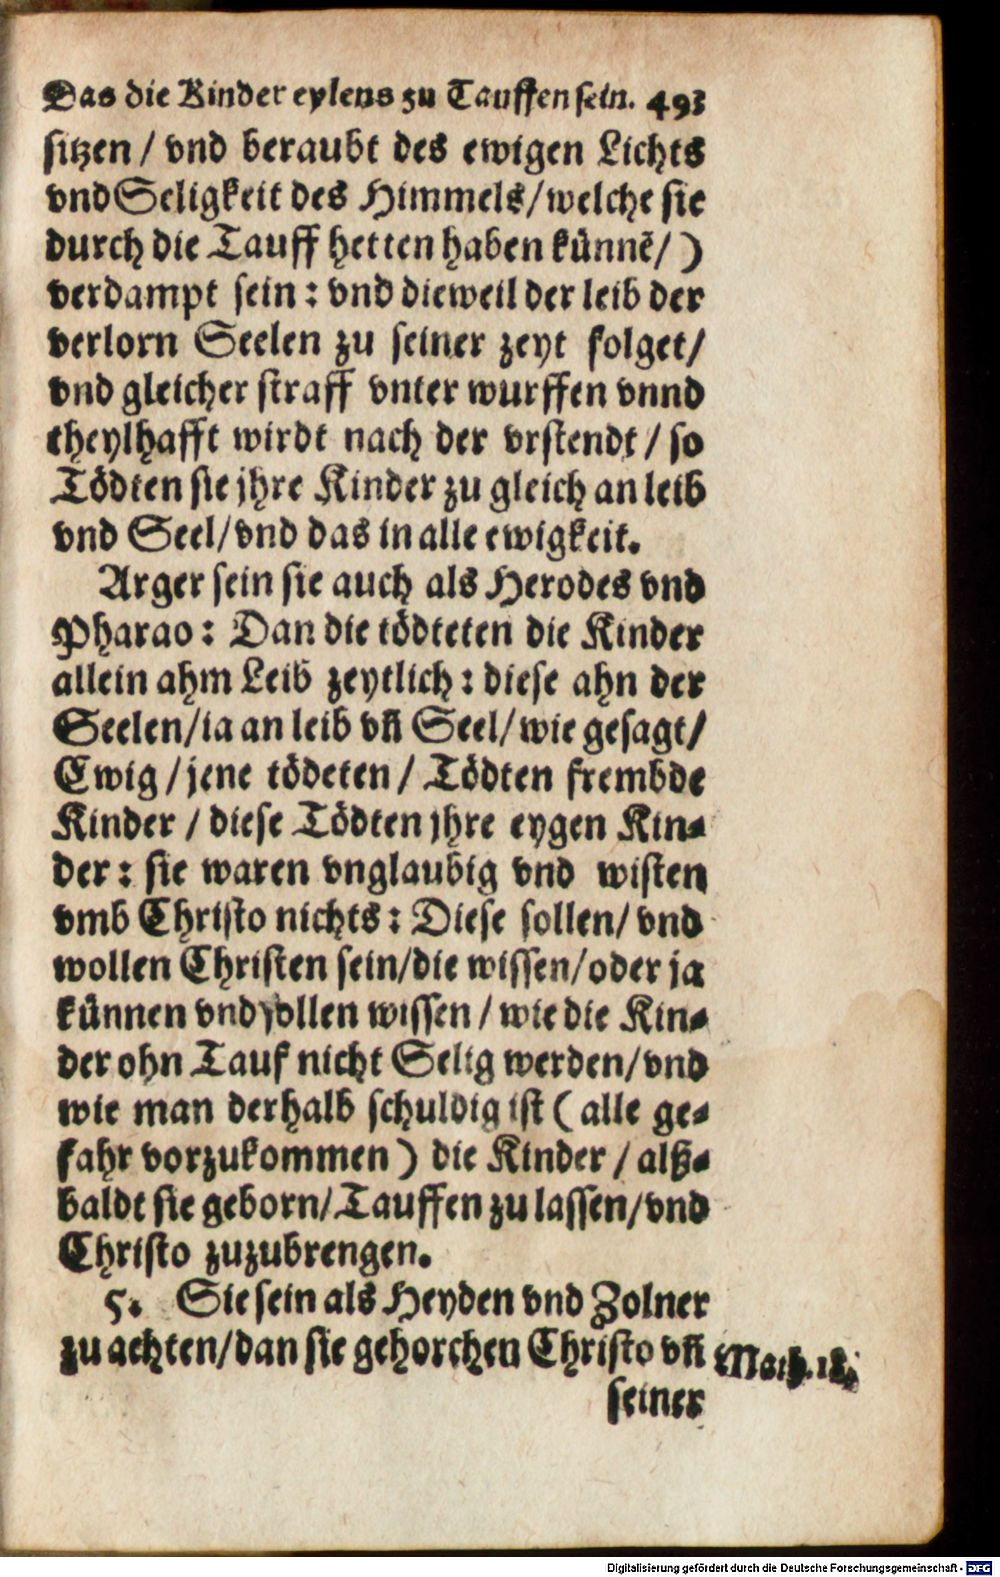 Das die Kinder eylens zu Tauffen sein. 493
sitzen / vnd beraubt des ewigen Lichts
vnd Seligkeit des Himmels / welche sie
durch die Tauff hetten haben künnẽ / )
verdampt sein : vnd dieweil der leib der
verlorn Seelen zu seiner zeyt folget /
vnd gleicher straff vnter wurffen vnnd
theylhafft wirdt nach der vrstendt / so
Tödten sie jhre Kinder zu gleich an leib
vnd Seel / vnd das in alle ewigkeit.
Arger sein sie auch als Herodes vnd
Pharao : Dan die tödteten die Kinder
allein ahm Leib zeytlich : diese ahn der
Seelen / ia an leib vñ Seel / wie gesagt /
Ewig / jene tödeten / Tödten frembde
Kinder / diese Tödten jhre eygen Kin-
der : sie waren vnglaubig vnd wisten
vmb Christo nichts : Diese sollen / vnd
wollen Christen sein / die wissen / oder ja
künnen vnd sollen wissen / wie die Kin-
der ohn Tauf nicht Selig werden / vnd
wie man derhalb schuldig ist ( alle ge-
fahr vorzukommen ) die Kinder / alß-
baldt sie geborn / Tauffen zu lassen / vnd
Christo zuzubrengen.
5. Sie sein als Heyden vnd Zolner
zu achten / dan sie gehorchen Christo vñ
Math. 18.
seiner
Digitalisierung gefördert durch die Deutsche Forschungsgemeinschaft - DFG